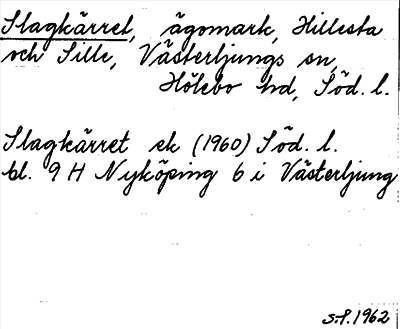 Slagkärret, ägomark, Hillesta
och Sille, Västerljungs sn,
Hölebo hd, Söd. l.
Slagkärret ek (1960) Söd. l.
bl. 9 H Nyköping 6 i Västerljung
S.P. 1962